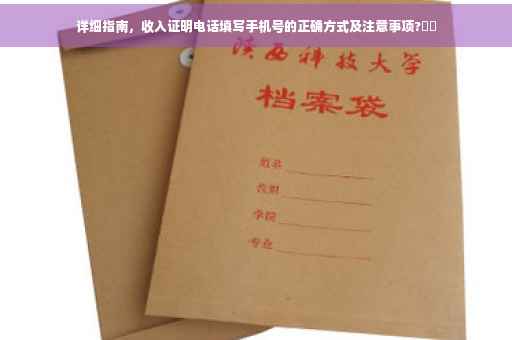 详细指南，收入证明电话填写手机号的正确方式及注意事项?
陕西科技大学
档案袋
姓名
班级
学院
专业